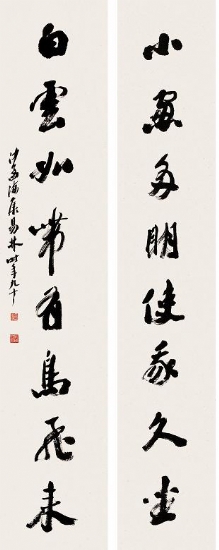 小窗多明使我久坐
白雲如帶有鳥飛來
沙孟海集易林時年九十